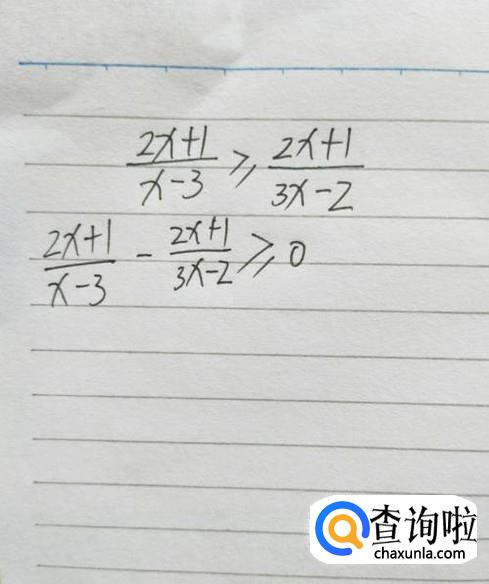 (2x+1)/(x-3) ≥ (2x+1)/(3x-2)
(2x+1)/(x-3) - (2x+1)/(3x-2) ≥ 0
查询啦
chaxunla.com